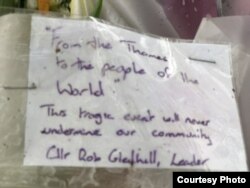 "From the Thames
to the people of the
World"
This tragic event will never
undermine our community
Cllr Rob Gledhill, Leader
Courtesy Photo